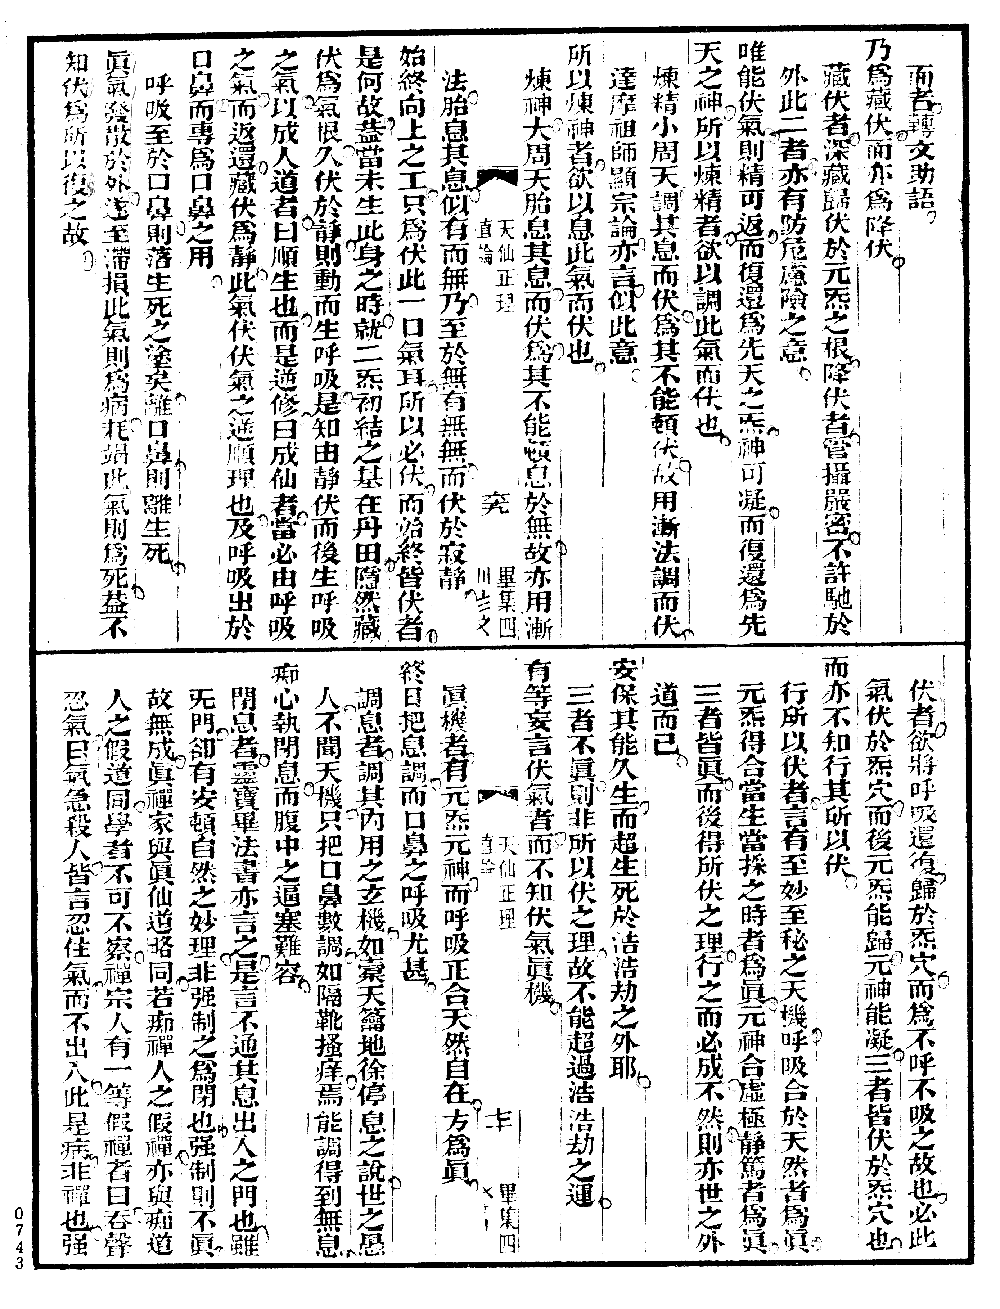 而者轉文助語
乃為藏伏而亦為降伏
藏伏者深藏歸伏於元炁之根降伏者管攝嚴密不許馳於
外此二者亦有防危慮險之意
唯能伏氣則精可返而復還為先天之炁神可凝而復還為先
天之神所以煉精者欲以調此氣而伏也
煉精小周天調其息而伏為其不能頓伏故用漸法調而伏
達摩祖師顯宗論亦言似此意
所以煉神者欲以息此氣而伏也
煉神大周天胎息其息而伏為其不能頓息於無故亦用漸
天仙正理
直論
畢集四
法胎息其息似有而無乃至於無有無無而伏於寂靜
始終向上之工只為伏此一口氣耳所以必伏而始終皆伏者
是何故葢當未生此身之時就二炁初結之基在丹田隱然藏
伏為氣根久伏於靜則動而生呼吸是知由靜伏而後生呼吸
之氣以成人道者曰順生也而是逆修曰成仙者當必由呼吸
之氣而返還藏伏為靜此氣伏伏氣之逆順理也及呼吸出於
口鼻而專為口鼻之用
呼吸至於口鼻則落生死之塗矣離口鼻則離生死
眞氣發散於外遂至滯損此氣則為病耗竭此氣則為死葢不
知伏為所以復之故
伏者欲將呼吸還復歸於炁穴而為不呼不吸之故也必此
氣伏於炁穴而後元炁能歸元神能凝三者皆伏於炁穴也
而亦不知行其所以伏
行所以伏者言有至妙至秘之天機呼吸合於天然者為眞
元炁得合當生當採之時者為眞元神合虛極靜篤者為眞
三者皆眞而後得所伏之理行之而必成不然則亦世之外
道而已
安保其能久生而超生死於浩浩劫之外耶
三者不眞則非所以伏之理故不能超過浩浩劫之運
有等妄言伏氣者而不知伏氣眞機
天仙正理
直論
畢集四
眞機者有元炁元神而呼吸正合天然自在方為眞
終日把息調而口鼻之呼吸尤甚
調息者調其內用之玄機如橐天籥地徐停息之說世之愚
人不聞天機只把口鼻數調如隔靴搔痒焉能調得到無息
痴心執閉息而腹中之逼塞難容
閉息者靈寶畢法書亦言之是言不通其息出入之門也雖
旡門卻有安頓自然之妙理非强制之為閉也强制則不眞
故無成眞禪家與眞仙道畧同若痴禪人之假禪亦與痴道
人之假道同學者不可不察禪宗人有一等假禪者曰吞聲
忍氣曰氣急殺人皆言忍住氣而不出入此是病非禪也强
0743